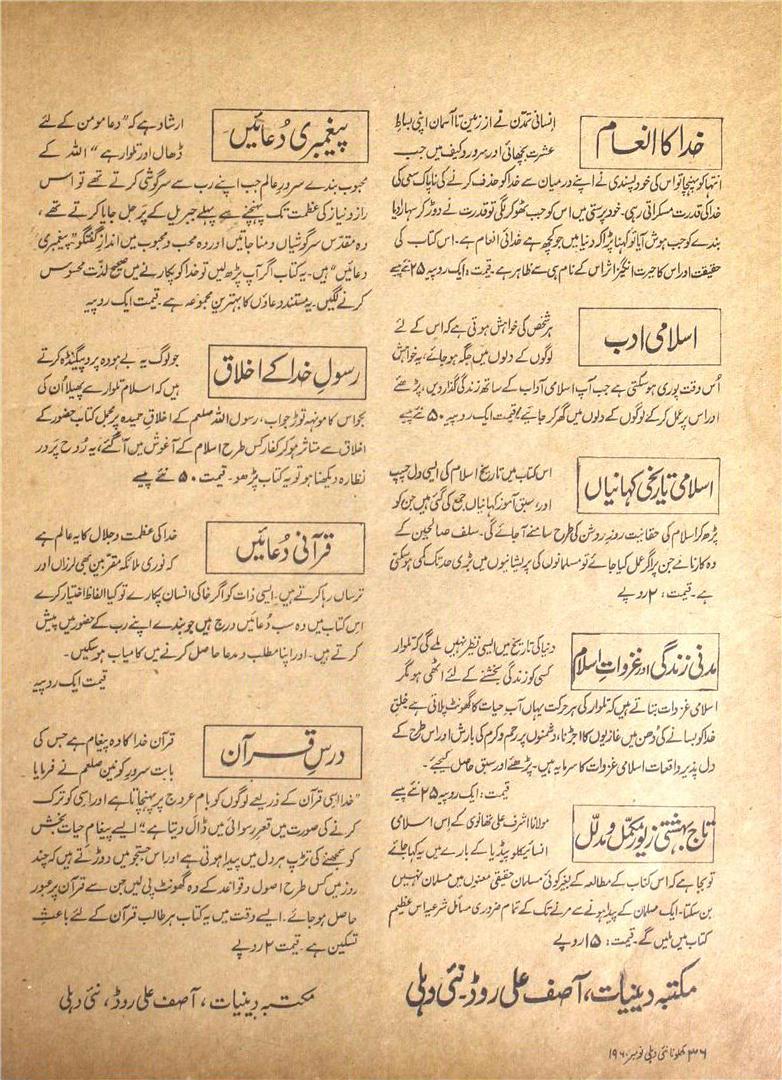 خدا کا انعام
انسانی تمدّن نے از زمین تا آسمان اپنی بساطِ
عشرت بچھائی اور سرور و کیف میں جب
انتہا کو پہنچا تو اس کی خود پسندی نے اپنے درمیان سے خدا کو حذف کرنے کی ناپاک سعی کی
خدا کی قدرت مسکراتی رہی۔ خود پرستی میں اس کو جب ٹھوکر لگی تو قدرت نے دوڑ کر سہارا دیا
بندے کو جب ہوش آیا تو کہنا پڑا کہ دنیا میں جو کچھ ہے خدائی انعام ہے۔ اس کتاب کی
حقیقت اور اس کا حیرت انگیز اثر اس کے نام ہی سے ظاہر ہے۔ قیمت: ایک روپیہ ۲۵ نئے پیسے
اسلامی ادب
ہر شخص کی خواہش ہوتی ہے کہ اس کے لئے
لوگوں کے دلوں میں جگہ ہو جائے، یہ خواہش
اُس وقت پوری ہو سکتی ہے جب آپ اسلامی آداب کے ساتھ زندگی گذار دیں، پڑھئے
اور اس پر عمل کر کے لوگوں کے دلوں میں گھر کر جائیے! قیمت ایک روپیہ ۵۰ نئے پیسے
اسلامی تاریخی کہانیاں
اس کتاب میں تاریخ اسلام کی ایسی دل چسپ
اور سبق آموز کہانیاں جمع کی گئی ہیں جن کو
پڑھ کر اسلام کی حقانیت روزِ روشن کی طرح سامنے آ جائے گی۔ سلف صالحین کے
وہ کارنامے جن پر اگر عمل کیا جائے تو مسلمانوں کی پریشانیوں میں بڑی حد تک کمی ہو سکتی
ہے۔ قیمت: ۲ روپے
مدنی زندگی اور غزواتِ اسلام
دنیا کی تاریخ میں ایسی نظیر نہیں ملے گی کہ تلوار
کسی کو زندگی بخشنے کے لئے اٹھی ہو مگر
اسلامی غزوات بتاتے ہیں کہ تلوار کی ہر حرکت یہاں آبِ حیات کا گھونٹ پلاتی ہے خلقِ
خدا کو بسانے کی دُھن میں غازیوں کا اجڑنا، دشمنوں پر رحم و کرم کی بارش اور اس طرح کے
دل پذیر واقعات اسلامی غزوات کا سرمایہ ہیں۔ پڑھئے اور سبق حاصل کیجئے۔
قیمت: ایک روپیہ ۲۵ نئے پیسے
تاج بہشتی زیور مکمّل و مدلّل
مولانا اشرف علی تھانوی کے اس اسلامی
انسائیکلوپیڈیا کے بارے میں یہ کہا جائے
تو بجا ہے کہ اس کتاب کے مطالعہ کے بغیر کوئی مسلمان حقیقی معنوں میں مسلمان نہیں
بن سکتا۔ ایک مسلمان کے پیدا ہونے سے مرنے تک کے تمام ضروری مسائل شرعیہ اس عظیم
کتاب میں ملیں گے۔ قیمت: ۱۵ روپے
مکتبہ دینیات، آصف علی روڈ۔ نئی دہلی
۳۶ کھلونا نئی دہلی نومبر ۱۹۶۰
پیغمبری دُعائیں
ارشاد ہے کہ ”دعا مومن کے لئے
ڈھال اور تلوار ہے“ اللہ کے
محبوب بندے سرورِ عالم جب اپنے رب سے سرگوشی کرتے تھے تو اس
راز و نیاز کی عظمت تک پہنچنے سے پہلے جبریل کے پَر جل جایا کرتے تھے،
وہ مقدّس سرگوشیاں و مناجاتیں اور وہ محب و محبوب میں اندازِ گفتگو ”پیغمبری
دعائیں“ ہیں۔ یہ کتاب اگر آپ پڑھ لیں تو خدا کو پکارنے میں صحیح لذّت محسوس
کرنے لگیں۔ یہ مستند دعاؤں کا بہترین مجموعہ ہے۔ قیمت ایک روپیہ
رسولِ خدا کے اخلاق
جو لوگ یہ بے ہودہ پروپیگنڈہ کرتے
ہیں کہ اسلام تلوار سے پھیلا اُن کی
بجواس کا مونہہ توڑ جواب، رسول اللہ صلعم کے اخلاقِ حمیدہ پر مکمل کتاب حضور کے
اخلاق سے متاثر ہو کر کفار کس طرح اسلام کے آغوش میں آ گئے، یہ رُوح پرور
نظارہ دیکھنا ہو تو یہ کتاب پڑھو۔ قیمت ۵۰ نئے پیسے
قرآنی دُعائیں
خدا کی عظمت و جلال کا یہ عالم ہے
کہ نوری ملائکہ مقربین بھی لرزاں اور
ترساں رہا کرتے ہیں۔ ایسی ذات کو اگر خاکی انسان پکارے تو کیا الفاظ اختیار کرے
اس کتاب میں وہ سب دُعائیں درج ہیں جو بندے اپنے رب کے حضور میں پیش
کرتے ہیں۔ اور اپنا مطلب و مدعا حاصل کرنے میں کامیاب ہو سکیں۔
قیمت ایک روپیہ
درسِ قرآن
قرآن خدا کا وہ پیغام ہے جس کی
بابت سرورِ کونین صلعم نے فرمایا
”خدا اسی قرآن کے ذریعے لوگوں کو بامِ عروج پر پہنچاتا ہے اور اسی کو ترک
کرنے کی صورت میں قعرِ رسوائی میں ڈال دیتا ہے“ ایسے پیغامِ حیات بخش
کو سمجھنے کی تڑپ ہر دل میں پیدا ہوتی ہے اور اس جستجو میں دوڑتے ہیں کہ چند
روز میں کس طرح اصول و قواعد کے وہ گھونٹ پی لیں جن سے قرآن پر عبور
حاصل ہو جائے۔ ایسے وقت میں یہ کتاب ہر طالبِ قرآن کے لئے باعثِ
تسکین ہے۔ قیمت ۲ روپے
مکتبہ دینیات، آصف علی روڈ، نئی دہلی